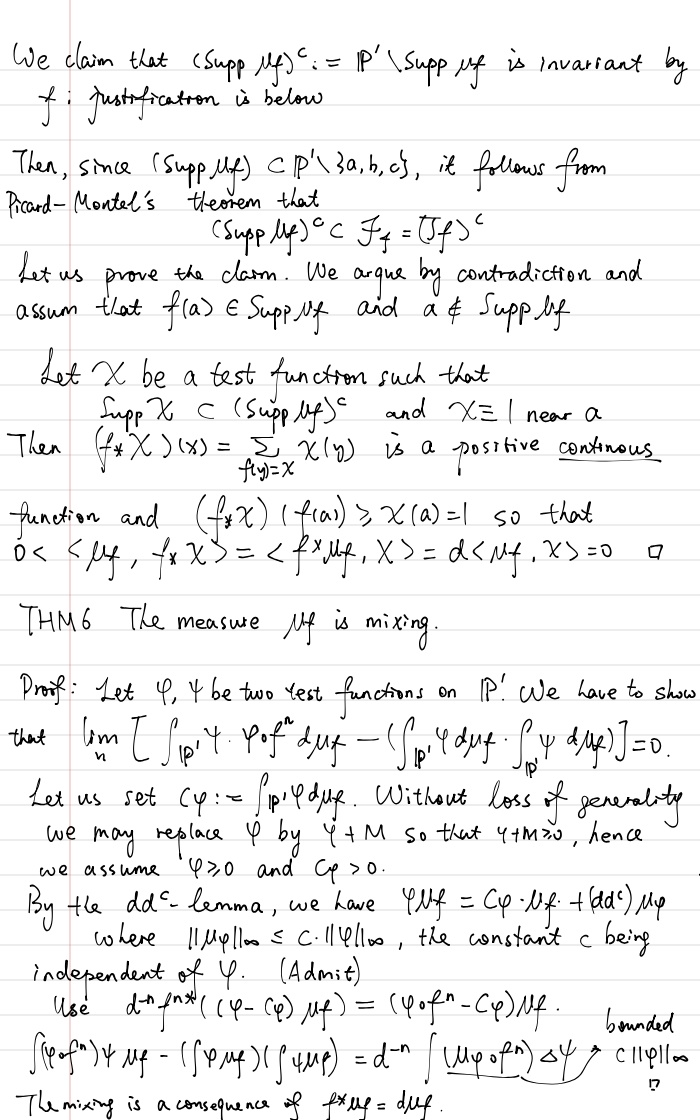 We claim that (Supp μf)ᶜ := ℙ¹ \ Supp μf is invariant by
f ; justification is below
Then, since (Supp μf) ⊂ ℙ¹ \ {a, b, c}, it follows from
Picard-Montel's theorem that
(Supp μf)ᶜ ⊂ F_f = (Jf)ᶜ
Let us prove the claim. We argue by contradiction and
assum that f(a) ∈ Supp μf and a ∉ Supp μf
Let χ be a test function such that
Supp χ ⊂ (Supp μf)ᶜ and χ ≡ 1 near a
Then (f_* χ)(x) = Σ_{f(y)=x} χ(y) is a positive continous
function and (f_* χ)(f(a)) ≥ χ(a) = 1 so that
0 < <μf, f_* χ> = <f^* μf, χ> = d<μf, χ> = 0 □
THM 6 The measure μf is mixing.
Proof: Let φ, ψ be two test functions on ℙ¹. We have to show
that lim_n [∫_{ℙ¹} ψ · φ∘fⁿ dμf − (∫_{ℙ¹} φ dμf · ∫_{ℙ¹} ψ dμf)] = 0.
Let us set Cφ := ∫_{ℙ¹} φ dμf. Without loss of generality
we may replace φ by φ + M so that φ + M ≥ 0, hence
we assume φ ≥ 0 and Cφ > 0.
By the ddᶜ-lemma, we have φμf = Cφ · μf + (ddᶜ) μφ
where ||μφ||∞ ≤ c · ||φ||∞, the constant c being
independent of φ. (Admit)
Use d⁻ⁿ fⁿ*((φ − Cφ) μf) = (φ∘fⁿ − Cφ) μf.
bounded
∫(φ∘fⁿ)ψ μf − (∫φμf)(∫ψμf) = d⁻ⁿ ∫(μφ∘fⁿ) Δψ c||φ||∞
□
The mixing is a consequence of f^* μf = dμf.